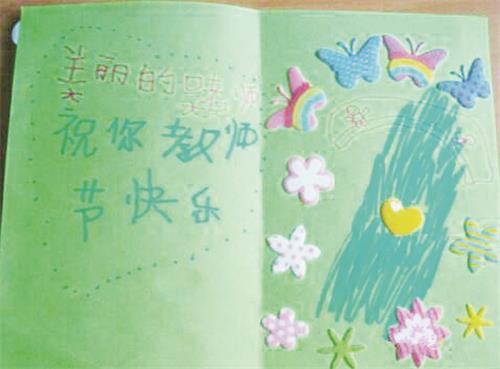 美丽的师
祝你教师
节快乐